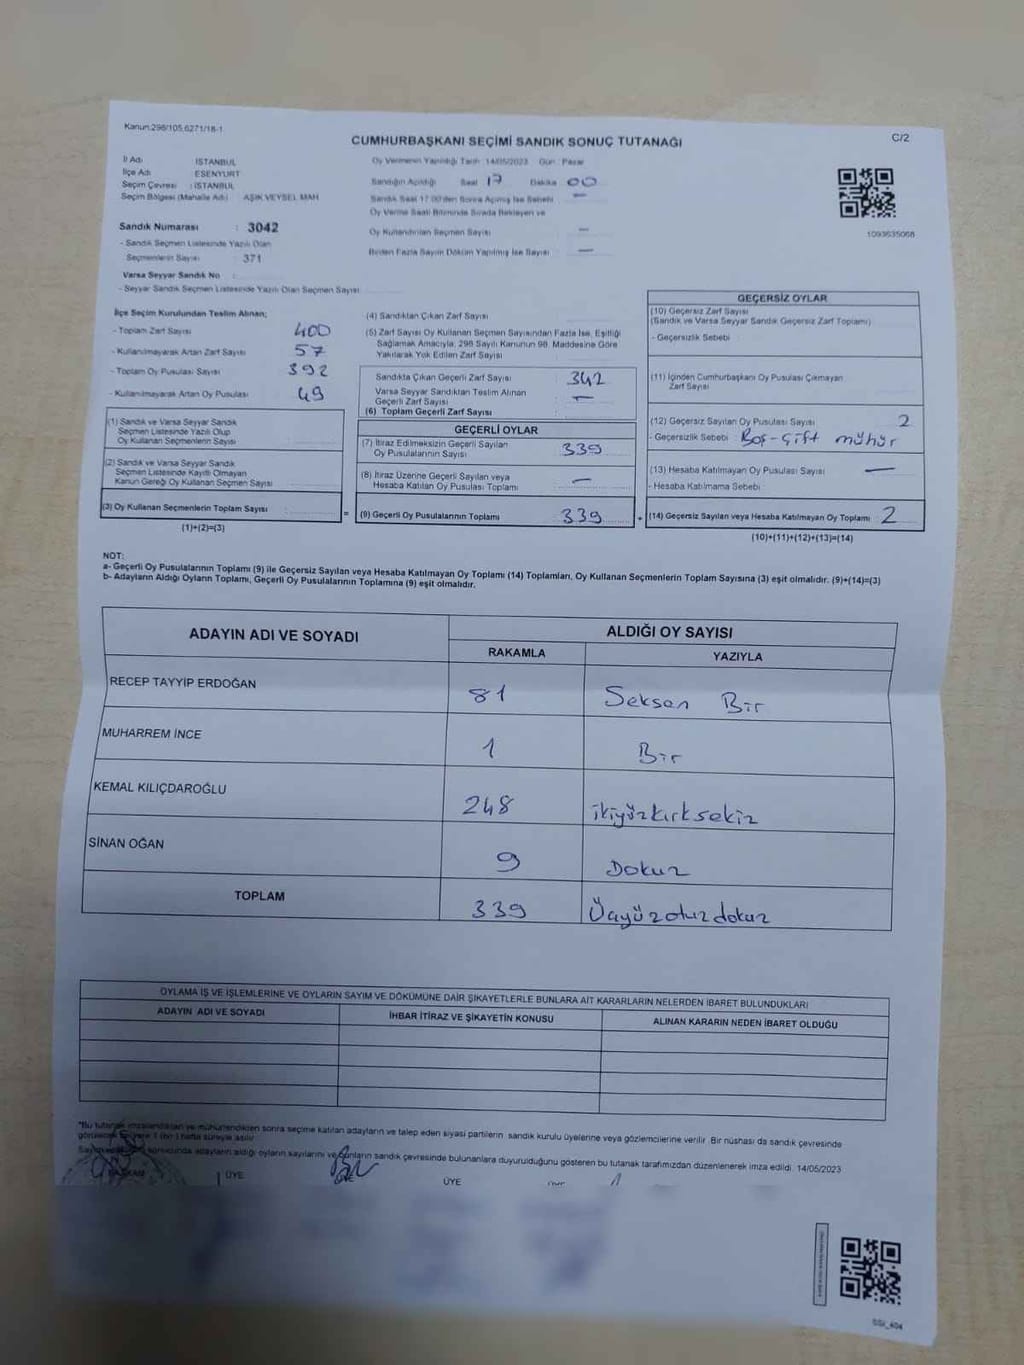 Kanun:298/105,6271/18-1
C/2
CUMHURBAŞKANI SEÇİMİ SANDIK SONUÇ TUTANAĞI
İl Adı İSTANBUL
İlçe Adı ESENYURT
Seçim Çevresi : İSTANBUL
Seçim Bölgesi (Mahalle Adı) AŞIK VEYSEL MAH
Oy Vermenin Yapıldığı Tarih 14/05/2023 Gün : Pazar
Sandığın Açıldığı Saat 17 Dakika 00
Sandık Saat 17:00'den Sonra Açılmış İse Sebebi —
Oy Verme Saati Bitiminde Sırada Bekleyen ve
Oy Kullandırılan Seçmen Sayısı —
Birden Fazla Sayım Döküm Yapılmış İse Sayısı —
1093635068
Sandık Numarası : 3042
- Sandık Seçmen Listesinde Yazılı Olan
Seçmenlerin Sayısı : 371
Varsa Seyyar Sandık No :
- Seyyar Sandık Seçmen Listesinde Yazılı Olan Seçmen Sayısı
İlçe Seçim Kurulundan Teslim Alınan;
- Toplam Zarf Sayısı 400
- Kullanılmayarak Artan Zarf Sayısı 57
- Toplam Oy Pusulası Sayısı 392
- Kullanılmayarak Artan Oy Pusulası 49
(1) Sandık ve Varsa Seyyar Sandık
Seçmen Listesinde Yazılı Olup
Oy Kullanan Seçmenlerin Sayısı
(2) Sandık ve Varsa Seyyar Sandık
Seçmen Listesinde Kayıtlı Olmayan
Kanun Gereği Oy Kullanan Seçmen Sayısı
(3) Oy Kullanan Seçmenlerin Toplam Sayısı
(1)+(2)=(3)
=
(4) Sandıktan Çıkan Zarf Sayısı
(5) Zarf Sayısı Oy Kullanan Seçmen Sayısından Fazla İse, Eşitliği
Sağlamak Amacıyla, 298 Sayılı Kanunun 98. Maddesine Göre
Yakılarak Yok Edilen Zarf Sayısı
Sandıkta Çıkan Geçerli Zarf Sayısı : 342
Varsa Seyyar Sandıktan Teslim Alınan
Geçerli Zarf Sayısı : —
(6) Toplam Geçerli Zarf Sayısı
GEÇERLİ OYLAR
(7) İtiraz Edilmeksizin Geçerli Sayılan
Oy Pusulalarının Sayısı : 339
(8) İtiraz Üzerine Geçerli Sayılan veya
Hesaba Katılan Oy Pusulası Toplamı : —
(9) Geçerli Oy Pusulalarının Toplamı : 339
+
GEÇERSİZ OYLAR
(10) Geçersiz Zarf Sayısı
(Sandık ve Varsa Seyyar Sandık Geçersiz Zarf Toplamı)
- Geçersizlik Sebebi :
(11) İçinden Cumhurbaşkanı Oy Pusulası Çıkmayan
Zarf Sayısı
(12) Geçersiz Sayılan Oy Pusulası Sayısı : 2
- Geçersizlik Sebebi : Boş-çift mühür
(13) Hesaba Katılmayan Oy Pusulası Sayısı : —
- Hesaba Katılmama Sebebi :
(14) Geçersiz Sayılan veya Hesaba Katılmayan Oy Toplamı : 2
(10)+(11)+(12)+(13)=(14)
NOT:
a- Geçerli Oy Pusulalarının Toplamı (9) ile Geçersiz Sayılan veya Hesaba Katılmayan Oy Toplamı (14) Toplamları, Oy Kullanan Seçmenlerin Toplam Sayısına (3) eşit olmalıdır. (9)+(14)=(3)
b- Adayların Aldığı Oyların Toplamı, Geçerli Oy Pusulalarının Toplamına (9) eşit olmalıdır.
ADAYIN ADI VE SOYADI
ALDIĞI OY SAYISI
RAKAMLA YAZIYLA
RECEP TAYYİP ERDOĞAN 81 Seksen Bir
MUHARREM İNCE 1 Bir
KEMAL KILIÇDAROĞLU 248 ikiyüzkırksekiz
SİNAN OĞAN 9 Dokuz
TOPLAM 339 Üçyüzotuzdokuz
OYLAMA İŞ VE İŞLEMLERİNE VE OYLARIN SAYIM VE DÖKÜMÜNE DAİR ŞİKAYETLERLE BUNLARA AİT KARARLARIN NELERDEN İBARET BULUNDUKLARI
ADAYIN ADI VE SOYADI İHBAR İTİRAZ VE ŞİKAYETİN KONUSU ALINAN KARARIN NEDEN İBARET OLDUĞU
*Bu tutanak imzalandıktan ve mühürlendikten sonra seçime katılan adayların ve talep eden siyasi partilerin sandık kurulu üyelerine veya gözlemcilerine verilir. Bir nüshası da sandık çevresinde
görülecek bir yere 1 (bir) hafta süreyle asılır.
sonucunda adayların aldığı oyların sayılarını ve bunların sandık çevresinde bulunanlara duyurulduğunu gösteren bu tutanak tarafımızdan düzenlenerek imza edildi. 14/05/2023
BAŞKAN ÜYE ÜYE
SSI_404